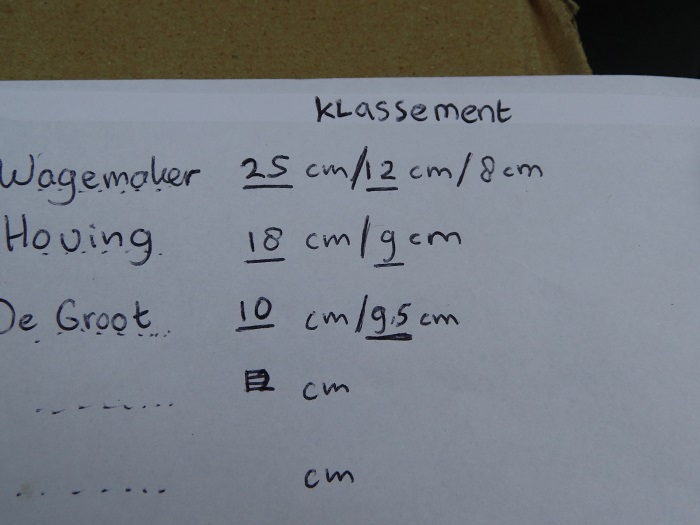 KLassement
Wagemaker 25 cm/12 cm/8cm
Houing 18 cm/9cm
De Groot 10 cm/9,5cm
........ cm
....... cm